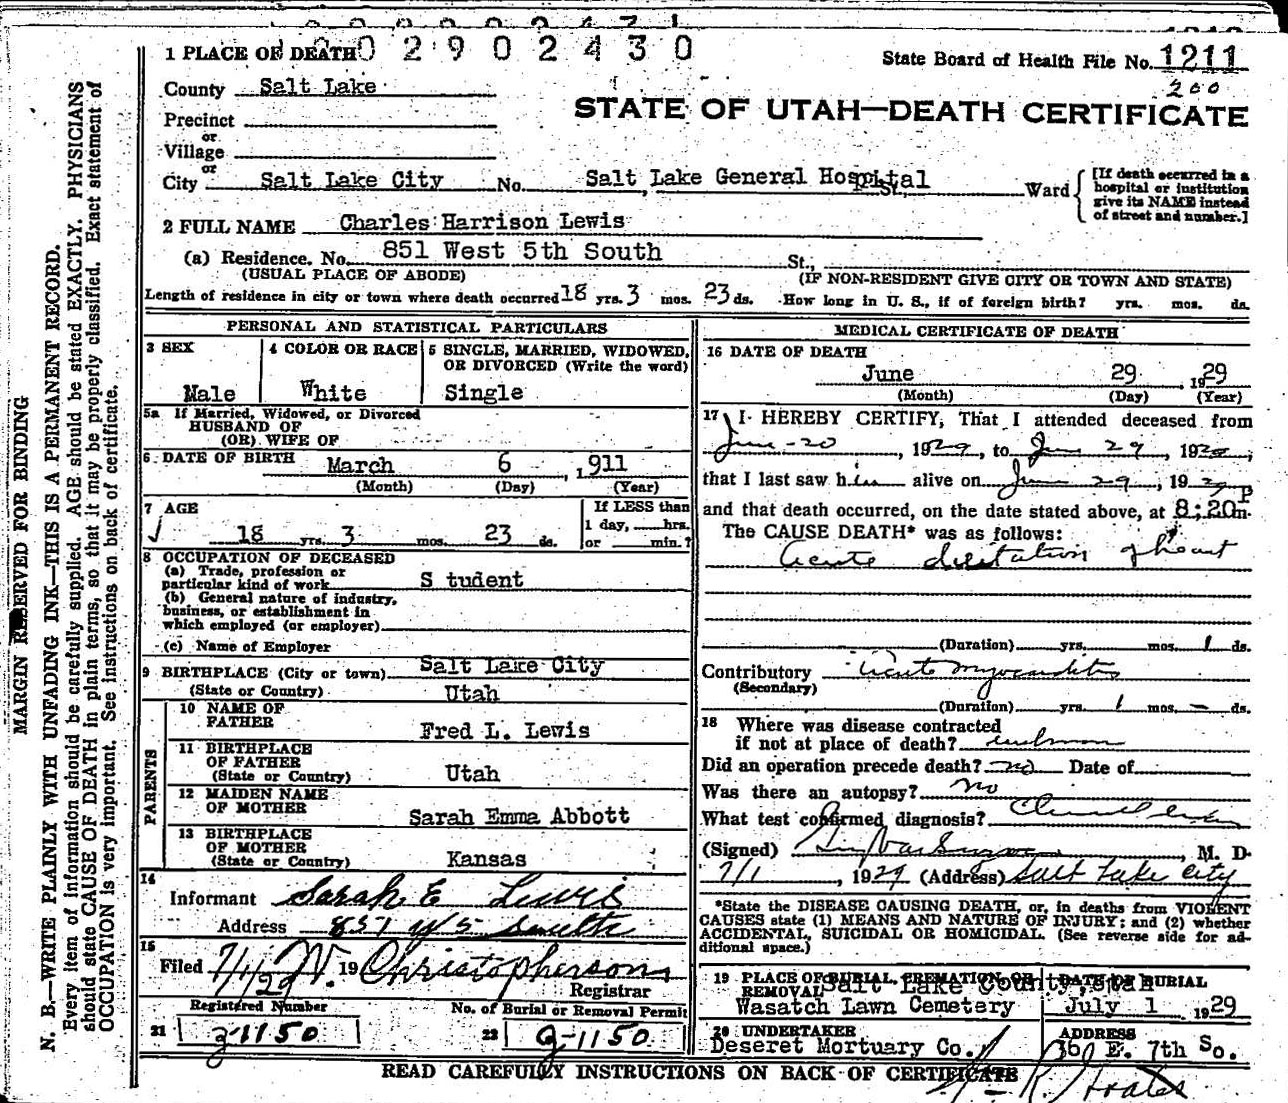 1 PLACE OF DEATH 0 2 9 0 2 4 3 0
State Board of Health File No. 1211
200
County Salt Lake
STATE OF UTAH—DEATH CERTIFICATE
Precinct
or
Village
or
City Salt Lake City No. Salt Lake General Hospital St., Ward
[If death occurred in a hospital or institution give its NAME instead of street and number.]
2 FULL NAME Charles Harrison Lewis
(a) Residence. No. 851 West 5th South St.,
(USUAL PLACE OF ABODE) (IF NON-RESIDENT GIVE CITY OR TOWN AND STATE)
Length of residence in city or town where death occurred 18 yrs. 3 mos. 23 ds. How long in U. S., if of foreign birth? yrs. mos. ds.
PERSONAL AND STATISTICAL PARTICULARS
3 SEX
Male
4 COLOR OR RACE
White
5 SINGLE, MARRIED, WIDOWED,
OR DIVORCED (Write the word)
Single
5a If Married, Widowed, or Divorced
HUSBAND OF
(OR) WIFE OF
6 DATE OF BIRTH March 6, 1911
(Month) (Day) (Year)
7 AGE
18 yrs. 3 mos. 23 ds.
If LESS than
1 day, hrs.
or min.?
8 OCCUPATION OF DECEASED
(a) Trade, profession or
particular kind of work S tudent
(b) General nature of industry,
business, or establishment in
which employed (or employer)
(c) Name of Employer
9 BIRTHPLACE (City or town) Salt Lake City
(State or Country) Utah
PARENTS
10 NAME OF
FATHER Fred L. Lewis
11 BIRTHPLACE
OF FATHER
(State or Country) Utah
12 MAIDEN NAME
OF MOTHER Sarah Emma Abbott
13 BIRTHPLACE
OF MOTHER
(State or Country) Kansas
14
Informant Sarah E Lewis
Address 851 W 5 South
15
Filed 7/1/29 19 Christopherson
Registrar
Registered Number
21 1150
No. of Burial or Removal Permit
22 1150
MEDICAL CERTIFICATE OF DEATH
16 DATE OF DEATH
June 29, 1929
(Month) (Day) (Year)
17 I HEREBY CERTIFY, That I attended deceased from
June 20, 1929, to June 29, 1929,
that I last saw him alive on June 29, 1929
and that death occurred, on the date stated above, at 8:20 P m.
The CAUSE DEATH* was as follows:
Acute dilitation of heart
(Duration) yrs. mos. 1 ds.
Contributory Acute myocarditis
(Secondary)
(Duration) yrs. 1 mos. – ds.
18 Where was disease contracted
if not at place of death? unknown
Did an operation precede death? no Date of
Was there an autopsy? no
What test confirmed diagnosis?
(Signed) , M. D.
7/1, 1929 (Address) Salt Lake City
*State the DISEASE CAUSING DEATH, or, in deaths from VIOLENT
CAUSES state (1) MEANS AND NATURE OF INJURY; and (2) whether
ACCIDENTAL, SUICIDAL OR HOMICIDAL. (See reverse side for ad-
ditional space.)
19 PLACE OF BURIAL, CREMATION, OR
REMOVAL Salt Lake County, Utah
Wasatch Lawn Cemetery
DATE OF BURIAL
July 1 1929
20 UNDERTAKER
Deseret Mortuary Co.
ADDRESS
36 E. 7th So.
READ CAREFULLY INSTRUCTIONS ON BACK OF CERTIFICATE
MARGIN RESERVED FOR BINDING
N. B.—WRITE PLAINLY WITH UNFADING INK—THIS IS A PERMANENT RECORD.
Every item of information should be carefully supplied. AGE should be stated EXACTLY. PHYSICIANS
should state CAUSE OF DEATH in plain terms, so that it may be properly classified. Exact statement of
OCCUPATION is very important. See instructions on back of certificate.